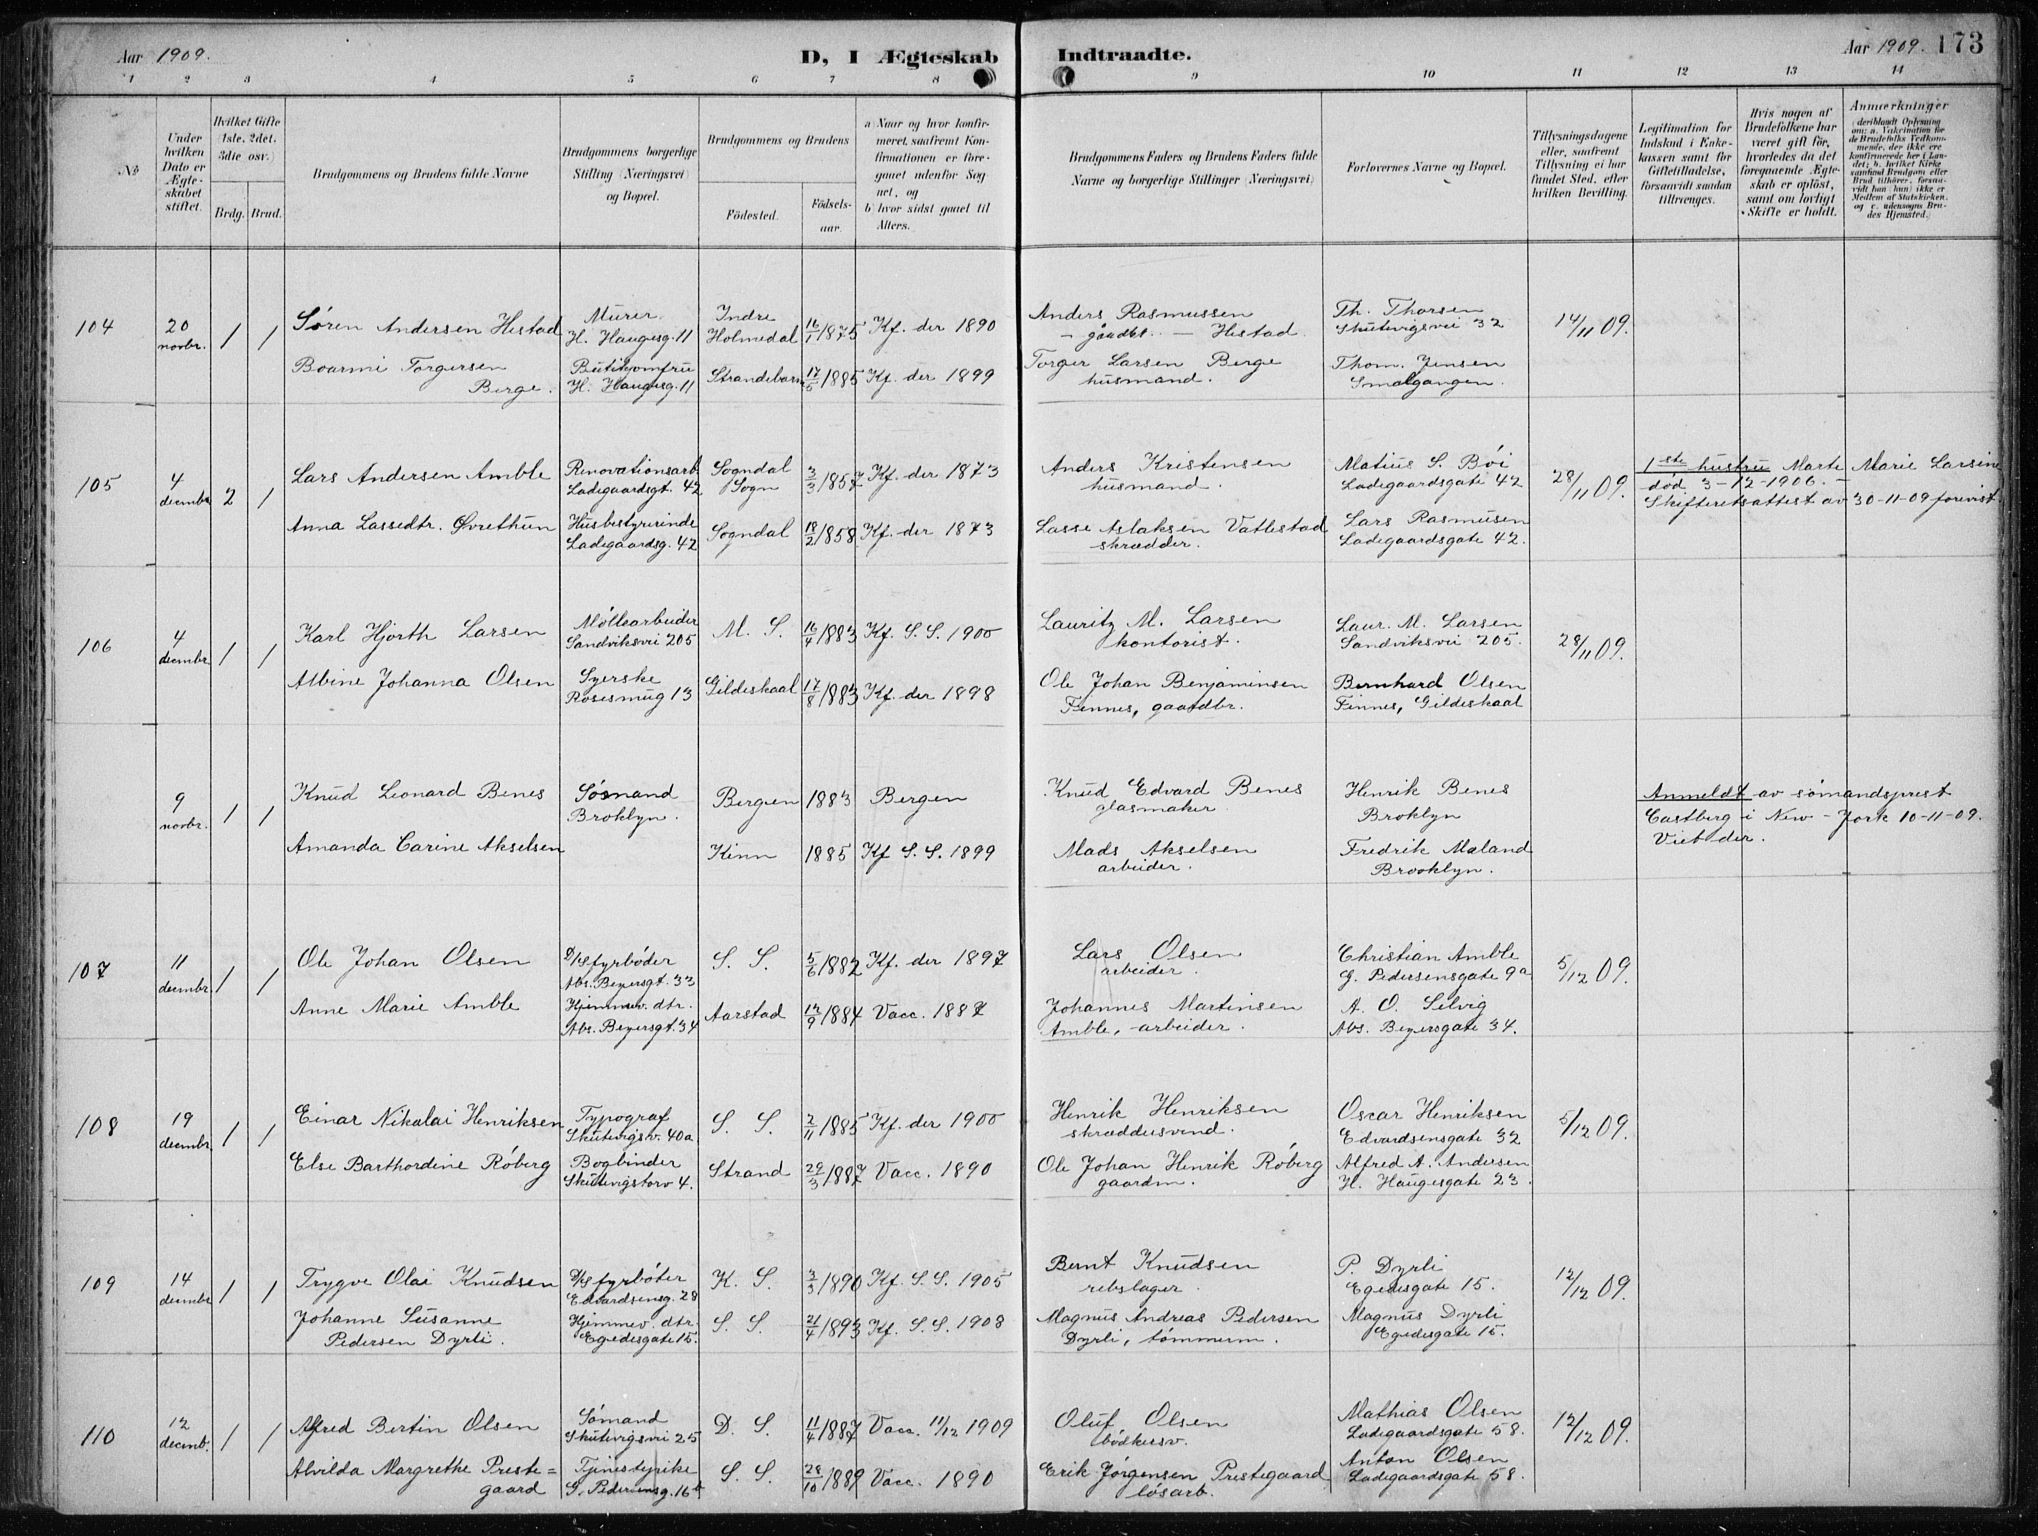 Aar 1909.
D, I Ægteskab Indtraadte.
Aar 1909. 173
1 2 3 4 5 6 7 8 9 10 11 12 13 14
No
Under hvilken Dato er Ægteskabet stiftet.
Hvilket Gifte (1ste, 2det, 3die osv.)
Brdg. Brud.
Brudgommens og Brudens fulde Navne
Brudgommens borgerlige Stilling (Næringsvei) og Bopæl.
Brudgommens og Brudens
Fødested. Fødselsaar.
a) Naar og hvor konfirmeret, saafremt Konfirmationen er foregaaet udenfor Sognet, og
b) hvor sidst gaaet til Alters.
Brudgommens Faders og Brudens Faders fulde Navne og borgerlige Stillinger (Næringsvei)
Forlovernes Navne og Bopæl.
Tillysningsdagene eller, saafremt Tillysning ei har fundet Sted, efter hvilken Bevilling.
Legitimation for Indskud i Enkekassen samt for Giftetilladelse, forsaavidt saadan tiltrænges.
Hvis nogen af Brudefolkene har været gift før, hvorledes da det foregaaende Ægteskab er opløst, samt om lovligt Skifte er holdt.
Anmerkninger (deriblandt Oplysning om: a. Vakcination for de Brudefolks Vedkommende, der ikke ere konfirmerede her i Landet; b. hvilket Kirkesamfund Brudgom eller Brud tilhører, forsaavidt han (hun) ikke er Medlem af Statskirken, og c. udensogns Brudes Hjemsted.)
104 20 novbr. 1 1 Søren Andersen Hestad Murer. H. Haugesg. 11 Indre Holmedal 16/1 1875 Kf. der 1890 Anders Rasmussen – gaadbr. – Hestad. Th. Thorsen Skutevigsvei 32 14/11 09.
Torgersen Berge. Butikjomfru H. Haugesg. 11 Strandebarm 17/5 1885 Kf. der 1899 Torger Larsen Berge husmand. Thom. Jensen Smalgangen.
105 4 decembr. 2 1 Lars Andersen Amble Renovationsarb. Ladegaardsgt. 42 Sogndal Sogn 3/3 1857 Kf. der 1873 Anders Kristensen husmand. Matius S. Bøi Ladegaardsgate 42 28/11 09. 1ste hustru Marte Marie Larsine død 3-12-1906. – Skifteretsattest av 30-11-09 forevist.
Anna Lassedtr. Øvrethun Husbestyrerinde Ladegaardsg. 42 Sogndal 18/2 1858 Kf. der 1873 Lasse Aslaksen Vatlestad skrædder. Lars Rasmusen Ladegaardsgate 42.
106 4 decembr. 1 1 Karl Hjorth Larsen Møllearbeider Sandviksvei 205 M. S. 16/4 1883 Kf. S. S. 1900 Lauritz M. Larsen kontorist. Laur. M. Larsen Sandviksvei 205. 28/11 09.
Albine Johanna Olsen Syerske Rosesmug 13 Gildeskaal 17/8 1883 Kf. der 1898 Ole Johan Benjaminsen Finnes, gaardbr. Bernhard Olsen Finnes, Gildeskaal
9 novbr. 1 1 Knud Leonard Benes Sømand Broklyn. Bergen 1883 Bergen Knud Edvard Benes glasmaker Henrik Benes Broklyn Anmeldt av sømandsprest Castberg i New-York 10-11-09. Viet der.
Amanda Carine Akselsen Kinn 1885 Kf S. S. 1899 Mads Akselsen arbeider. Fredrik Maland Brooklyn.
107 11 decembr. 1 1 Ole Johan Olsen D/S fyrbøder Abs. Beyersgt. 33 S. S. 5/6 1882 Kf. der 1897 Lars Olsen arbeider. Christian Amble G. Pedersensgate 9a 5/12 09.
Anne Marie Amble Hjemmev. dtr. Abs. Beyersgt. 34 Aarstad 14/9 1884 Vacc. 1887 Johannes Martinsen Amble, arbeider. A. O. Selvig Abs. Beyersgate 34.
108 19 decembr. 1 1 Einar Nikolai Henriksen Typograf Skutevigsv. 40a S. S. 2/11 1885 Kf. der 1900 Henrik Henriksen skræddersvend. Oscar Henriksen Edvardsensgate 32 5/12 09.
Else Barthordine Røberg Bogbinder Skutevigstorv 4. Strand 29/3 1887 Vacc. 1890 Ole Johan Henrik Røberg gaardm. Alfred A. Andersen H. Haugesgate 23.
109 14 decembr. 1 1 Trygve Olai Knudsen D/S fyrbøter Edvardsensg. 28 K. S. 3/3 1890 Kf. S. S. 1905 Bernt Knudsen rebslager. P. Dyrli Egedesgate 15. 12/12 09.
Johanne Susanne Pedersen Dyrli. Hjemmev. dtr. Egedesgate 15. S. S. 21/4 1893 Kf. S. S. 1908 Magnus Andreas Pedersen Dyrli, tømmerm. Magnus Dyrli Egedesgate 15.
110 12 decemb. 1 1 Alfred Bertin Olsen Sømand Skutevigsvei 25 D. S. 11/4 1887 Vacc. 11/12 1909 Oluf Olsen bødkersv. Mathias Olsen Ladegaardsgate 58. 12/12 09.
Alvilda Margrethe Prestegaard Tjenestepike G. Pedersensg. 16b S. S. 28/10 1889 Vacc. 1890 Erik Jørgensen Prestegaard løsarb. Anton Olsen Ladegaardsgate 58.